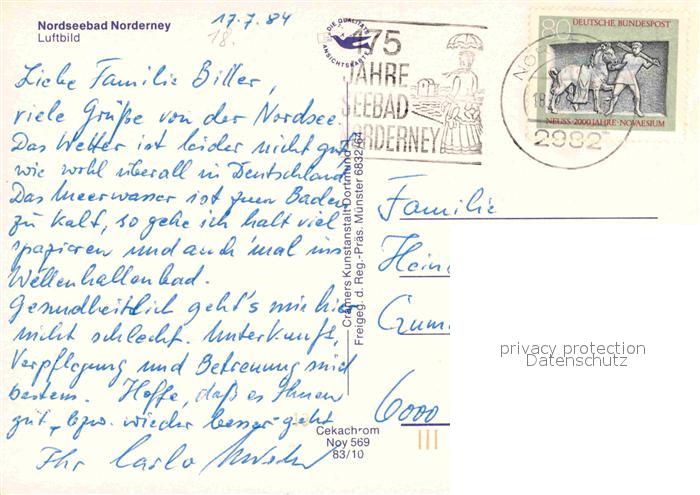 Nordseebad Norderney
Luftbild
17.7.84
18.
DIE QUALITÄTS
ANSICHTSKARTE
175
JAHRE
SEEBAD
NORDERNEY
80 DEUTSCHE BUNDESPOST
NEUSS·2000 JAHRE·NOVAESIUM
NO
18.
2982
Liebe Familie Biller,
viele Grüße von der Nordsee.
Das Wetter ist leider nicht gut
wie wohl überall in Deutschland
Das Meerwasser ist zum Baden
zu kalt, so gehe ich halt viel
spazieren und auch 'mal ins
Wellenhallenbad.
Gesundheitlich geht's mir hier
nicht schlecht. Unterkunft,
Verpflegung und Betreuung sind
bestens. Hoffe, daß es Ihnen
gut, bzw. wieder besser geht
Ihr Carlo
Cramers Kunstanstalt Dortmund
Freigeg. d. Reg.-Präs. Münster 6832/64
Familie
Hein
Crum
6000
privacy protection
Datenschutz
Cekachrom
Noy 569
83/10